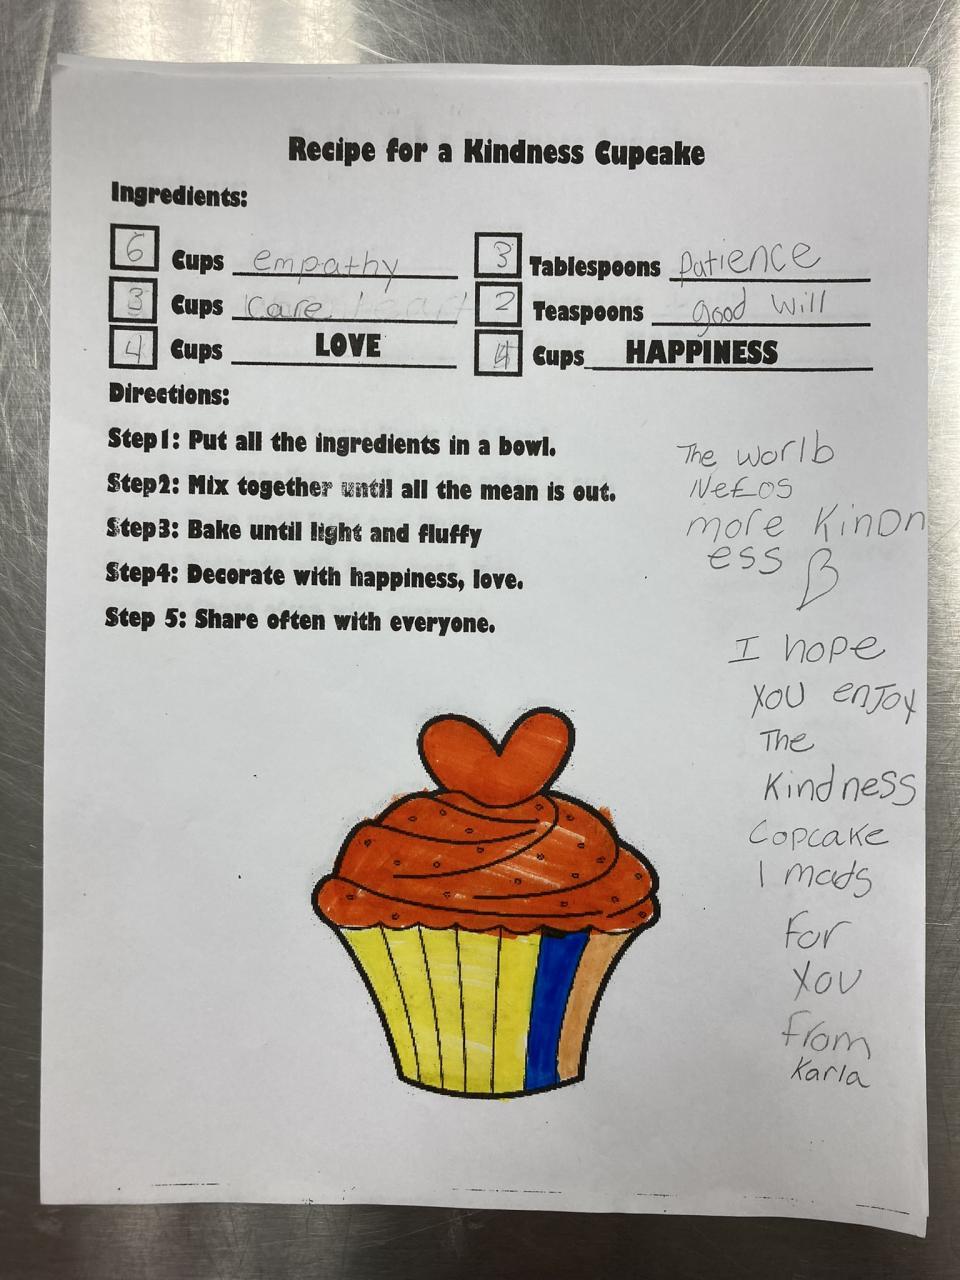 Recipe for a Kindness Cupcake
Ingredients:
6 Cups empathy 3 Tablespoons patience
3 Cups care 2 Teaspoons good will
4 Cups LOVE 4 Cups HAPPINESS
Directions:
Step1: Put all the ingredients in a bowl.
Step2: Mix together until all the mean is out.
Step3: Bake until light and fluffy
Step4: Decorate with happiness, love.
Step 5: Share often with everyone.
The worlb
NeEos
more KinDn
ess
I hope
you enjoy
The
Kindness
Copcake
I mads
For
you
From
Karla